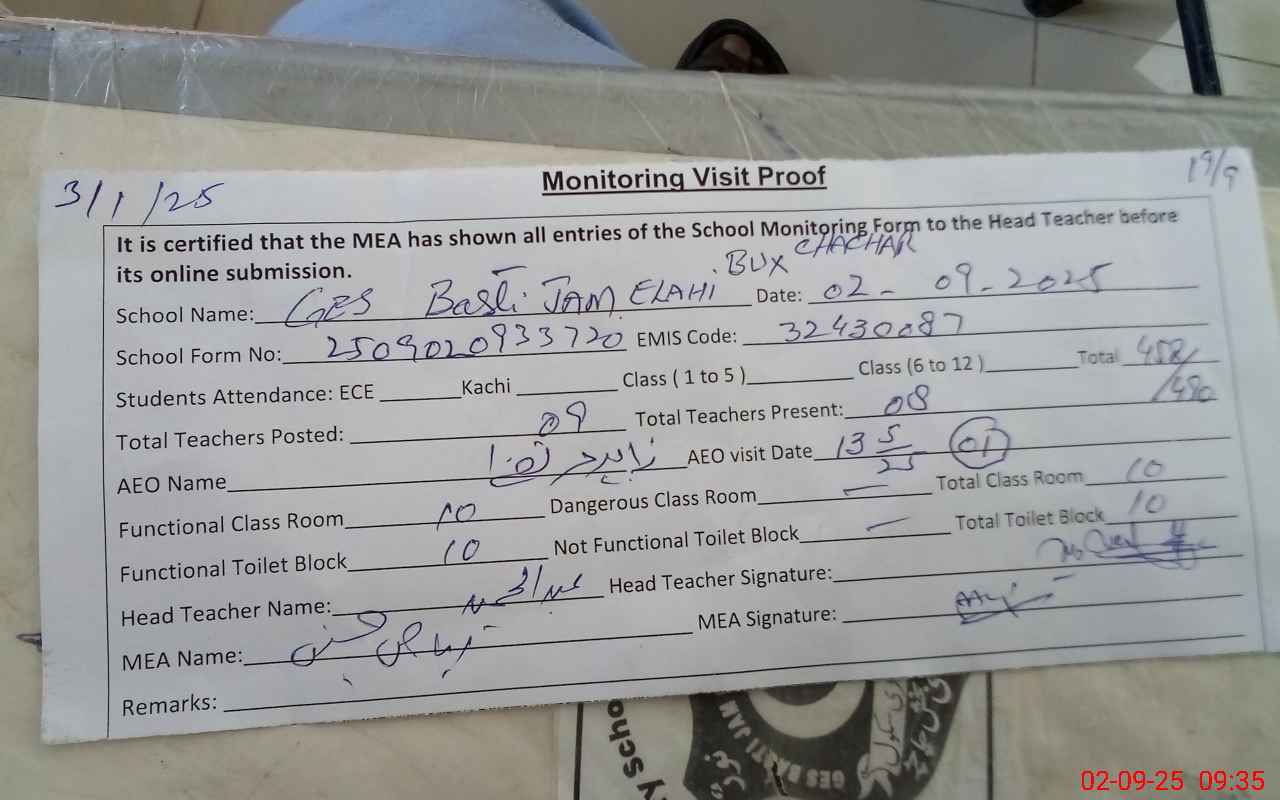 3/1/25
Monitoring Visit Proof
19/9
It is certified that the MEA has shown all entries of the School Monitoring Form to the Head Teacher before
its online submission.
School Name: GES Basti JAM ELAHI BUX CHACHAR Date: 02-09-2025
School Form No: 2509020933720 EMIS Code: 32430087
Students Attendance: ECE Kachi Class ( 1 to 5 ) Class (6 to 12 ) Total 458/480
Total Teachers Posted: 09 Total Teachers Present: 08
AEO Name AEO visit Date 13 5/25 01
Functional Class Room 10 Dangerous Class Room — Total Class Room 10
Functional Toilet Block 10 Not Functional Toilet Block — Total Toilet Block 10
Head Teacher Name: Head Teacher Signature:
MEA Name: MEA Signature:
Remarks:
GES BASTI JAM
02-09-25 09:35